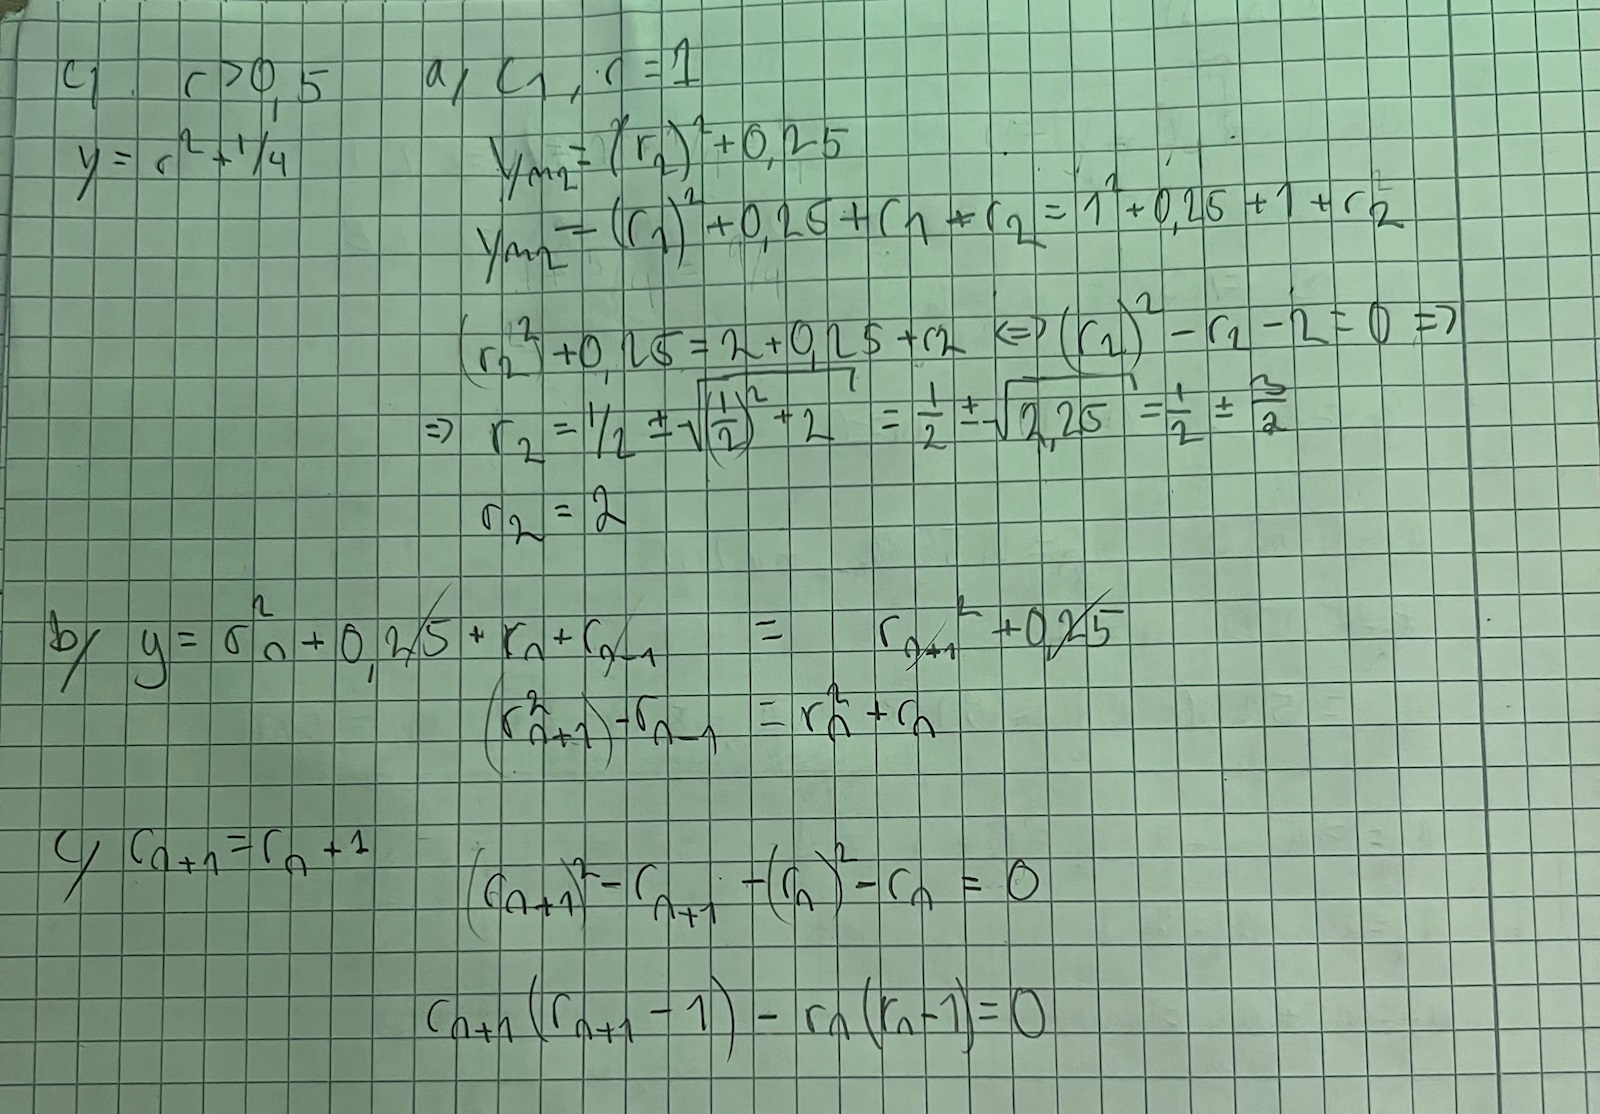 c) r > 0,5
y = r² + 1/4
a) C₁, r = 1
yₘ₂ = (r₂)² + 0,25
yₘ₂ = (r₁)² + 0,25 + r₁ + r₂ = 1² + 0,25 + 1 + r₂²
(r₂²) + 0,25 = 2 + 0,25 + r₂ <=> (r₂)² - r₂ - 2 = 0 =>
=> r₂ = 1/2 ± √((1/2)² + 2) = 1/2 ± √2,25 = 1/2 ± 3/2
r₂ = 2
b) y = rₙ² + 0,25 + rₙ + rₙ₋₁ = rₙ₊₁² + 0,25
(rₙ₊₁²) - rₙ₋₁ = rₙ² + rₙ
c) rₙ₊₁ = rₙ + 1
(rₙ₊₁)² - rₙ₊₁ - (rₙ)² - rₙ = 0
rₙ₊₁(rₙ₊₁ - 1) - rₙ(rₙ - 1) = 0